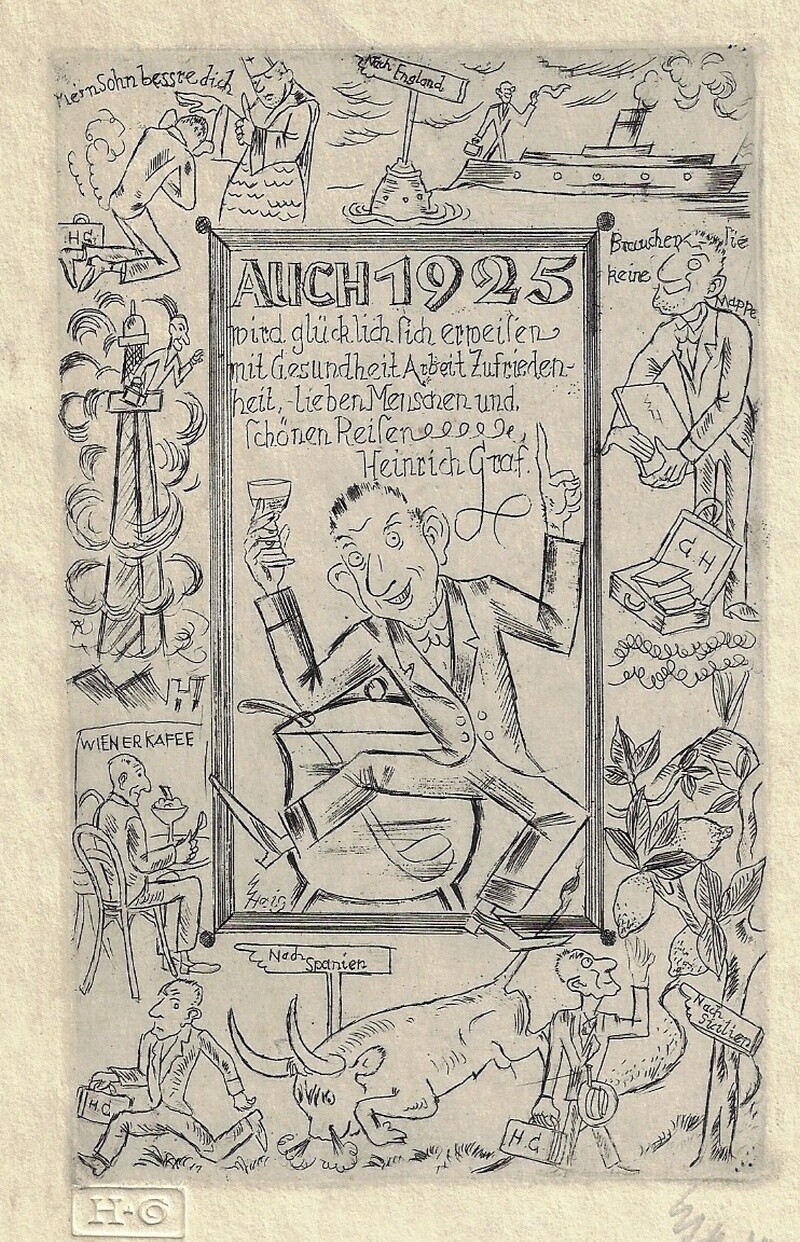 Mein Sohn bessre dich
Nach England
H G
AUCH 1925
wird glücklich sich erweisen
mit Gesundheit Arbeit Zufrieden-
heit, - lieben Menschen und
schönen Reisen
Heinrich Graf.
Brauchen Sie
keine
Mappe
G H
WIENER KAFEE
Nach
Spanien
H.G
H G
Nach
Sicilien
H-G